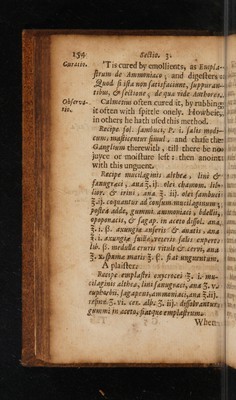 154 Sectio. 3.
Curatio. 'Tis cured by emollients, as Empla-
strum de Ammoniaco; and digesters:
Quod si ista non satisfaciunt, suppuran-
tibus, & sectione, de qua vide Authores.
Observa-
tio. Calmetius often cured it, by rubbing
it often with spittle onely. Howbeit,
in others he hath used this method.
Recipe fol. sambuci, P. i. salis modi-
cum, masticentur simul, and chafe the
Ganglium therewith, till there be no
juyce or moisture left: then anoint
with this unguent.
Recipe mucilaginis altheæ, lini &
fænugræci, ana ℥. ij. olei chamom. lili-
ior. & irini, ana ℥. iij. olei sambuci
℥.ij. coquantur ad consum. mucilaginum;
postea adde, gummi. ammoniaci, bdellii,
opoponacis, & sagap. in aceto dissol. ana
℥. i. ß. axungiæ anseris & anatis, ana
℥. i. axungiæ suillæ, veteris salis expert.
lib. ß. medullæ cruris vituli & cervi, ana
ß. fiat unguentum.
A plaister:
Recipe emplastri oxycrocei ℥. i. mu-
cilaginis altheæ, lini fænugræci, ana ℥. v.
euphorbii, sagapeni, ammoniaci, ana ℥.ij.
℥. vi. cer. alb. ℥. iij. dissolvantur
gummi in aceto, fiatque emplastrum.
When